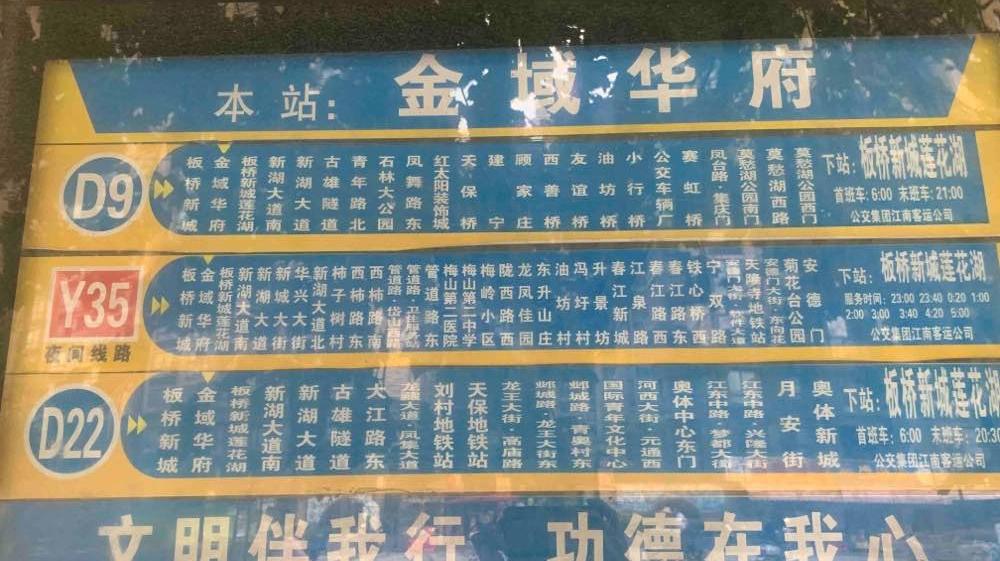 本站：金域华府
D9
板桥新城
金域华府
板桥新城莲花湖
新湖大道南
新湖大道
古雄隧道
青年路北
石林大公园
凤舞路东
红太阳装饰城
天保桥
建宁
顾家庄
西善桥
友谊桥
油坊桥
小行桥
公交车辆厂
赛虹桥
凤台路·集庆门
莫愁湖公园南门
莫愁湖西路
莫愁湖公园西门
下站：板桥新城莲花湖
首班车：6:00 末班车：21:00
公交集团江南客运公司
Y35
夜间线路
板桥新城
金域华府
板桥新城莲花湖
新湖大道南
新湖大道
新城大街
华兴大街
新湖大道北
柿子树村
西柿路东
西柿路南
管道路·岱山路
管道路东
梅山第二医院
梅山第二中学
梅岭小区
陇西路西
龙凤佳园
东升山庄
油坊村
冯圩村
升景坊
春江新城
江泉路
春江路西
春江路东
铁心桥西
宁双路
天隆寺地铁站
安德门大街·东向花
菊花台公园
安德门
下站：板桥新城莲花湖
服务时间：23:00 23:40 0:20 1:00
2:00 3:00 3:40 4:20 5:00
公交集团江南客运公司
D22
板桥新城
金域华府
板桥新城莲花湖
新湖大道南
新湖大道
古雄隧道
大江路东
龙藏大道·凤集大道
刘村地铁站
天保地铁站
龙王大街·高庙路
邺城路·龙王大街东
邺城路·青奥村东
国际青年文化中心
河西大街·元通西
奥体中心东门
江东中路·梦都大街
江东中路·兴隆大街
月安街
奥体新城
下站：板桥新城莲花湖
首班车：6:00 末班车：20:30
公交集团江南客运公司
文明伴我行 功德在我心